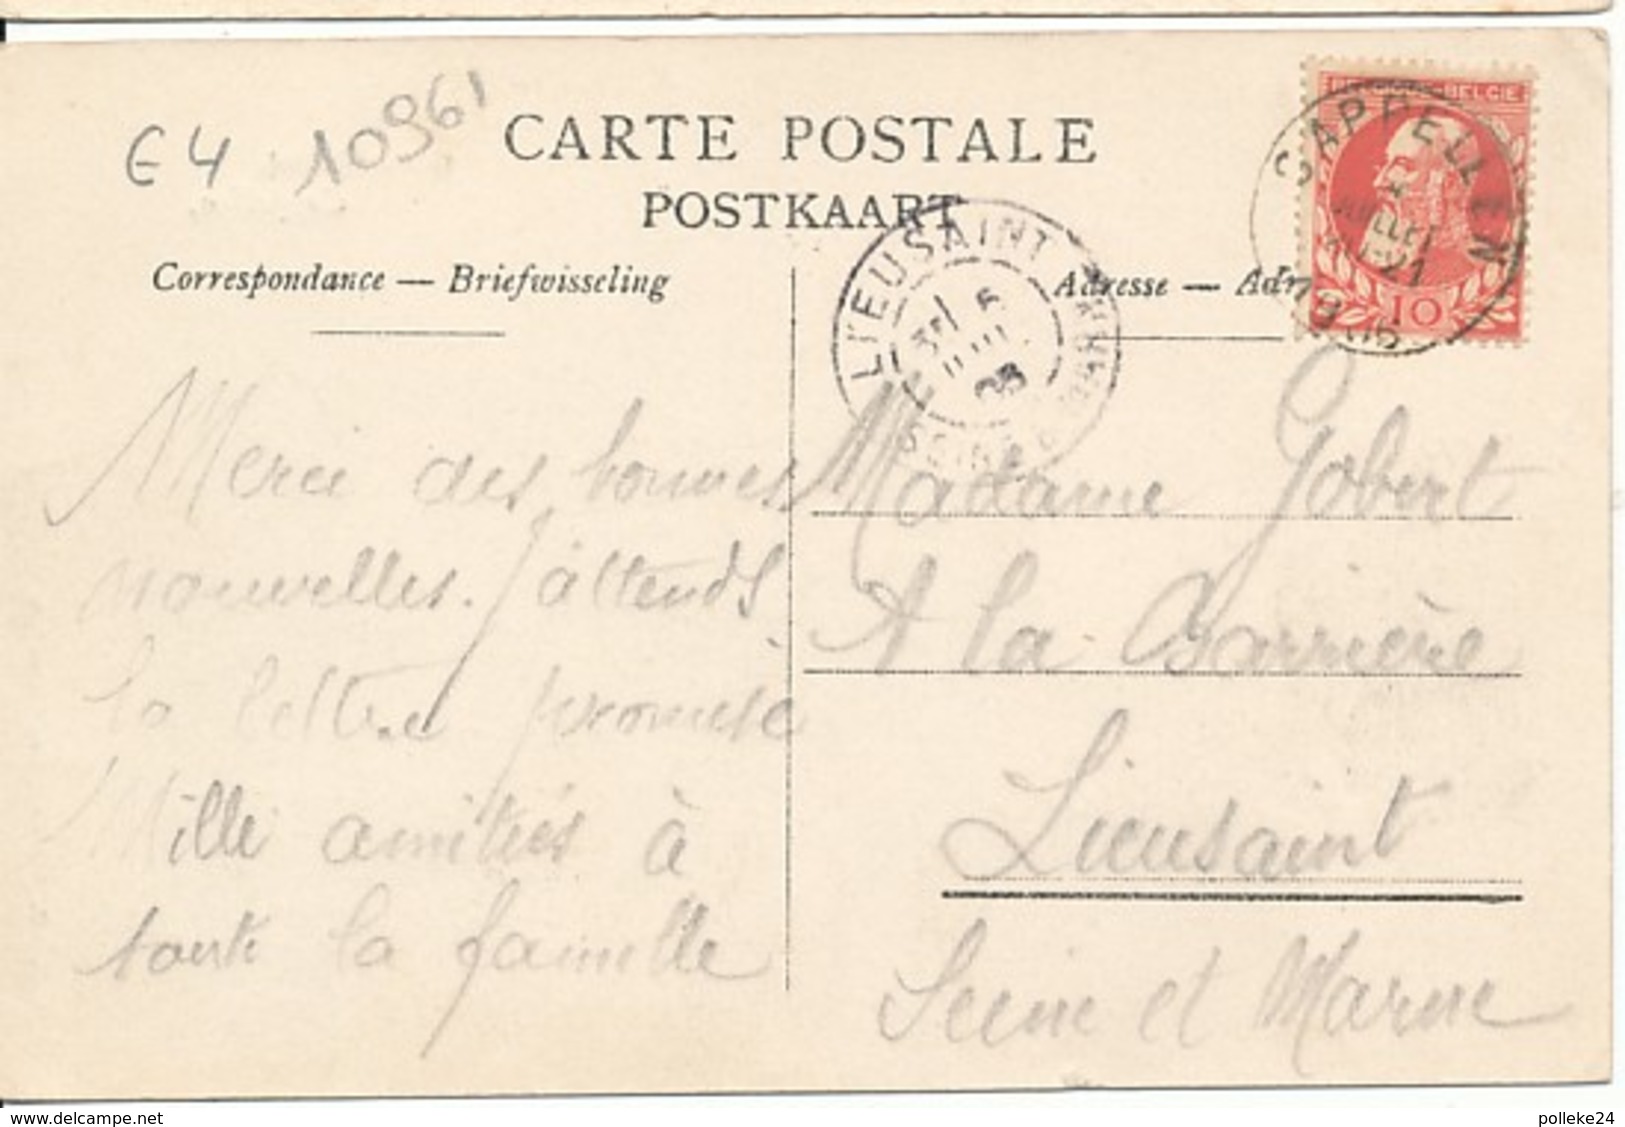 E4
10961
CARTE POSTALE
POSTKAART
Correspondance — Briefwisseling
Adresse —
BELGIE
10
CAPPELLEN
JUILLET
21
1906
LIEUSAINT
Merci des bonnes
nouvelles. J'attends
la lettre promise
Mille amitiés à
toute la famille
Madame Gobert
A la Barrière
Lieusaint
Seine et Marne
www.delcampe.net
polleke24